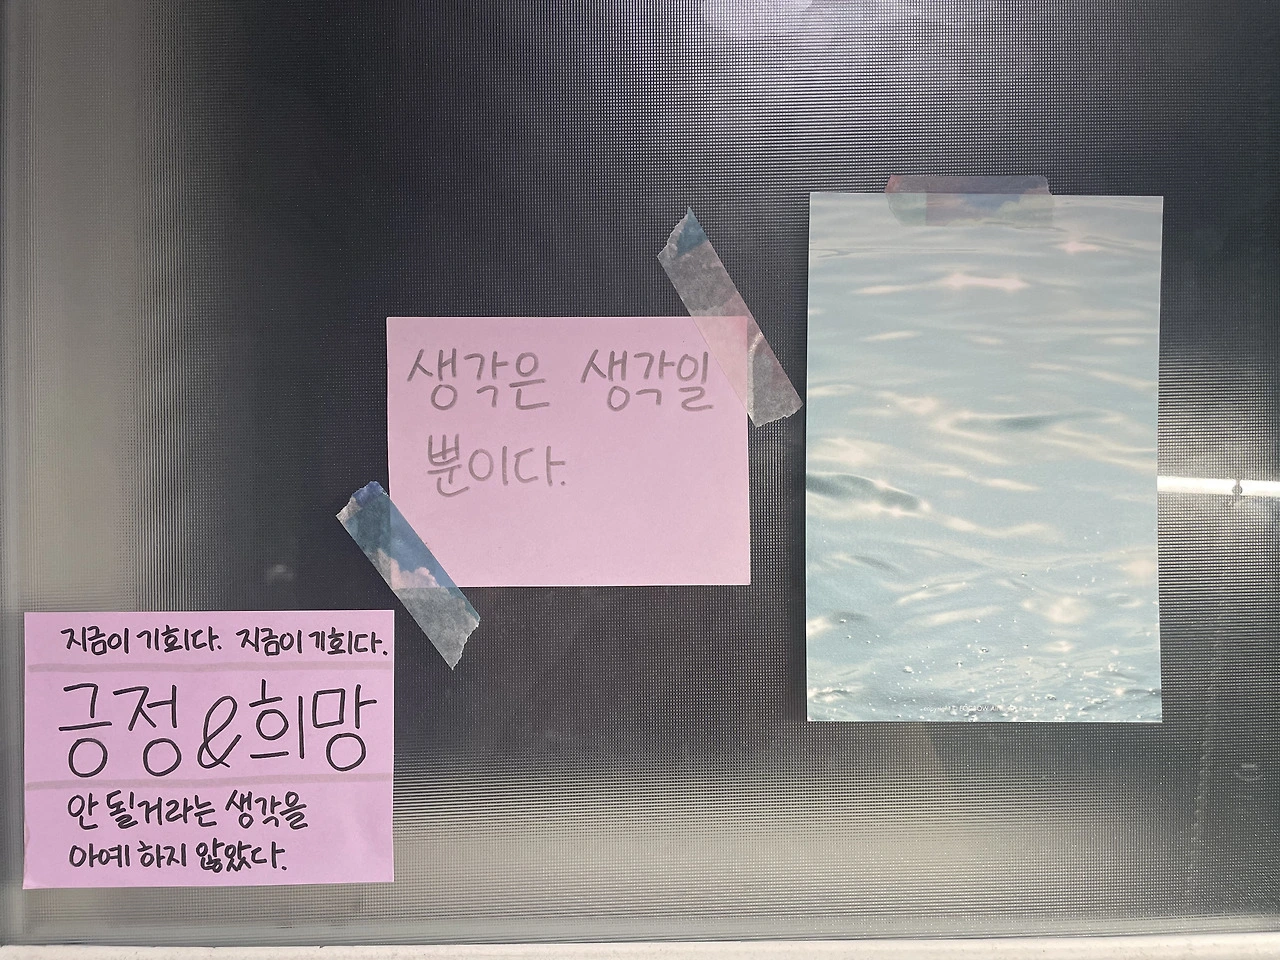 생각은 생각일
뿐이다.
지금이 기회다. 지금이 기회다.
긍정&희망
안 될거라는 생각을
아예 하지 않았다.